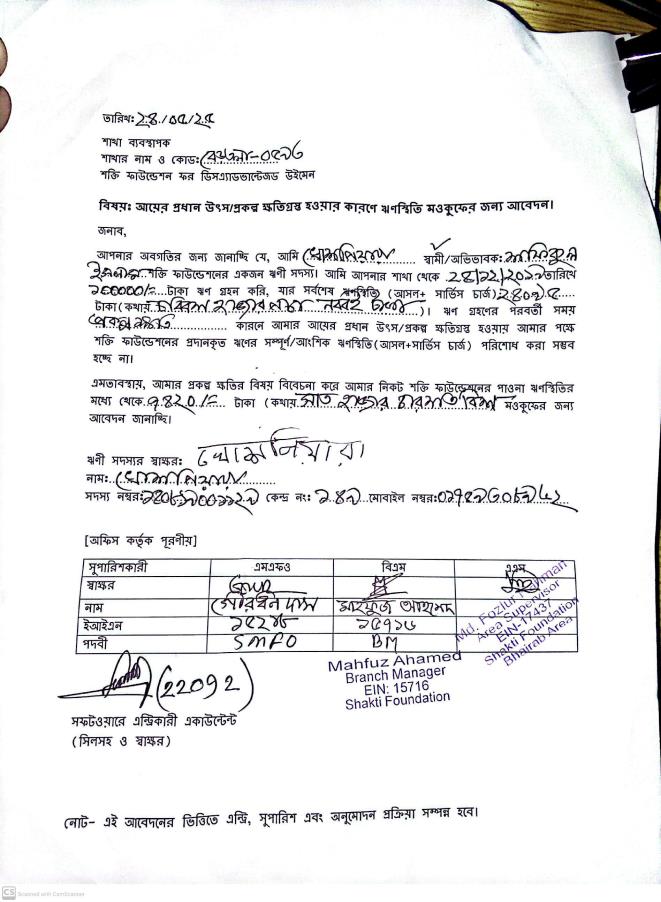 তারিখ: ২৪/০৫/২৫
শাখা ব্যবস্থাপক
শাখার নাম ও কোড:
শক্তি ফাউন্ডেশন ফর ডিসএ্যাডভান্টেজড উইমেন
বিষয়: আয়ের প্রধান উৎস/প্রকল্প ক্ষতিগ্রস্থ হওয়ার কারণে ঋণস্থিতি মওকুফের জন্য আবেদন।
জনাব,
আপনার অবগতির জন্য জানাচ্ছি যে, আমি স্বামী/অভিভাবক:
শক্তি ফাউন্ডেশনের একজন ঋণী সদস্য। আমি আপনার শাখা থেকে তারিখে
টাকা ঋণ গ্রহন করি, যার সর্বশেষ ঋণস্থিতি (আসল+ সার্ভিস চার্জ)
টাকা (কথায়: চব্বিশ হাজার )। ঋণ গ্রহণের পরবর্তী সময়
কারনে আমার আয়ের প্রধান উৎস/প্রকল্প ক্ষতিগ্রস্থ হওয়ায় আমার পক্ষে
শক্তি ফাউন্ডেশনের প্রদানকৃত ঋণের সম্পূর্ণ/আংশিক ঋণস্থিতি (আসল+সার্ভিস চার্জ) পরিশোধ করা সম্ভব
হচ্ছে না।
এমতাবস্থায়, আমার প্রকল্প ক্ষতির বিষয় বিবেচনা করে আমার নিকট শক্তি ফাউন্ডেশনের পাওনা ঋণস্থিতির
মধ্যে থেকে ৭৪২০/= টাকা (কথায় সাত হাজার চারশত বিশ মওকুফের জন্য
আবেদন জানাচ্ছি।
ঋণী সদস্যর স্বাক্ষর:
নাম:
সদস্য নম্বর: কেন্দ্র নং: মোবাইল নম্বর:
[অফিস কর্তৃক পূরণীয়]
সুপারিশকারী এমএফও বিএম এএস
স্বাক্ষর
নাম মাহফুজ আহামদ
ইআইএন ১৫৭১৬
পদবী SMFO BM
Md. Fozlur Rahman
Area Supervisor
EIN-17437
Shakti Foundation
Bhairab Area
(22092)
Mahfuz Ahamed
Branch Manager
EIN: 15716
Shakti Foundation
সফটওয়ারে এন্ট্রিকারী একাউন্টেন্ট
(সিলসহ ও স্বাক্ষর)
নোট- এই আবেদনের ভিত্তিতে এন্ট্রি, সুপারিশ এবং অনুমোদন প্রক্রিয়া সম্পন্ন হবে।
CS Scanned with CamScanner